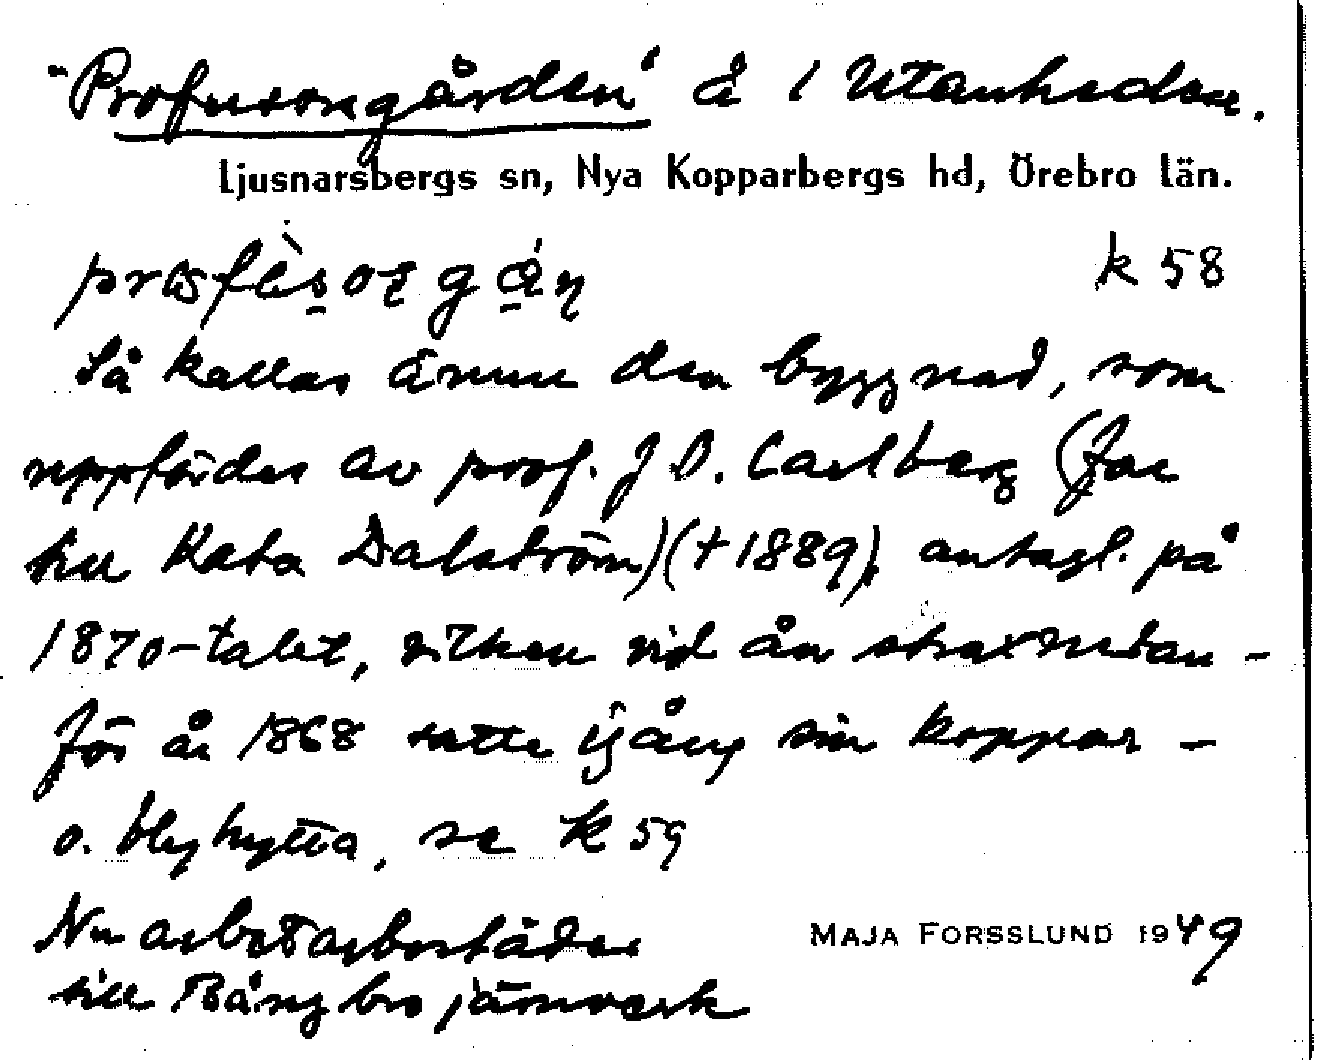 "Professorsgården" å 1 Utanheden.
Ljusnarsbergs sn, Nya Kopparbergs hd, Örebro län.
k 58
Så kallas ännu den byggnad, som
uppfördes av prof. J O. Carlberg (far
till Kata Dalström) († 1889), antagl. på
1870-talet, vilken vid ån strax nedan-
för år 1868 satte igång sin koppar-
o. blyhytta, se k 59
Nu arbetarbostäder
till Bångbro järnverk
MAJA FORSSLUND 1949